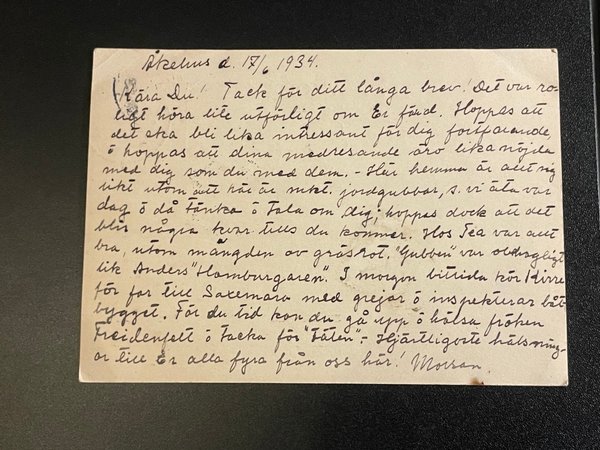 Åkehus d. 17/6 1934.
Kära Du! Tack för ditt långa brev! Det var ro-
ligt höra lite utförligt om Er färd. Hoppas att
det ska bli lika intressant för dig fortfarande
o hoppas att dina medresande äro lika nöjda
med dig som du med dem. - Här hemma är allt sig
likt utom att här är mkt. jordgubbar, s. vi äta var
dag o då tänka o tala om dig; hoppas dock att det
blir några kvar tills du kommer. Hos Tea var allt
bra, utom mängden av gråskot. "Gubben" var
lik Anders "Hamburgaren". I morgon bittida kör
för far till Saxemara med grejor o inspekterar båt-
bygget. För du tid kan du gå upp o hälsa fröken
Freidenfelt o tacka för "Fålen". - Hjärtligaste hälsning-
ar till Er alla fyra från oss här! Morsan.